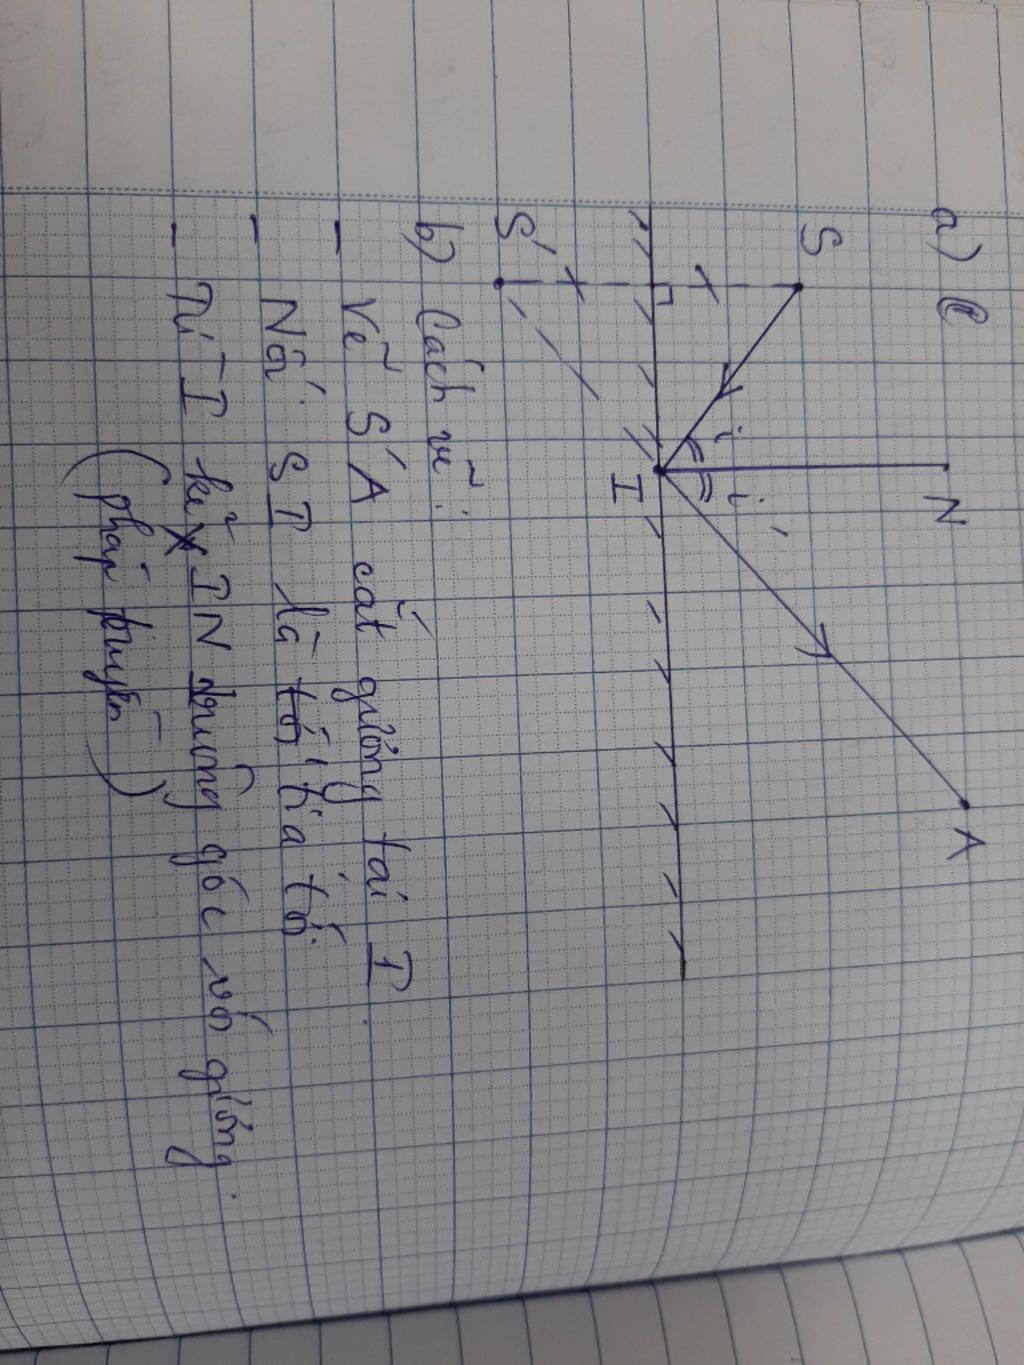 a)
S
N
A
i
i'
I
S'
b) Cách vẽ:
- Vẽ S'A cắt gương tại I.
- Nối SI là tia tới.
- Từ I kẻ IN vuông góc với gương.
(pháp tuyến)